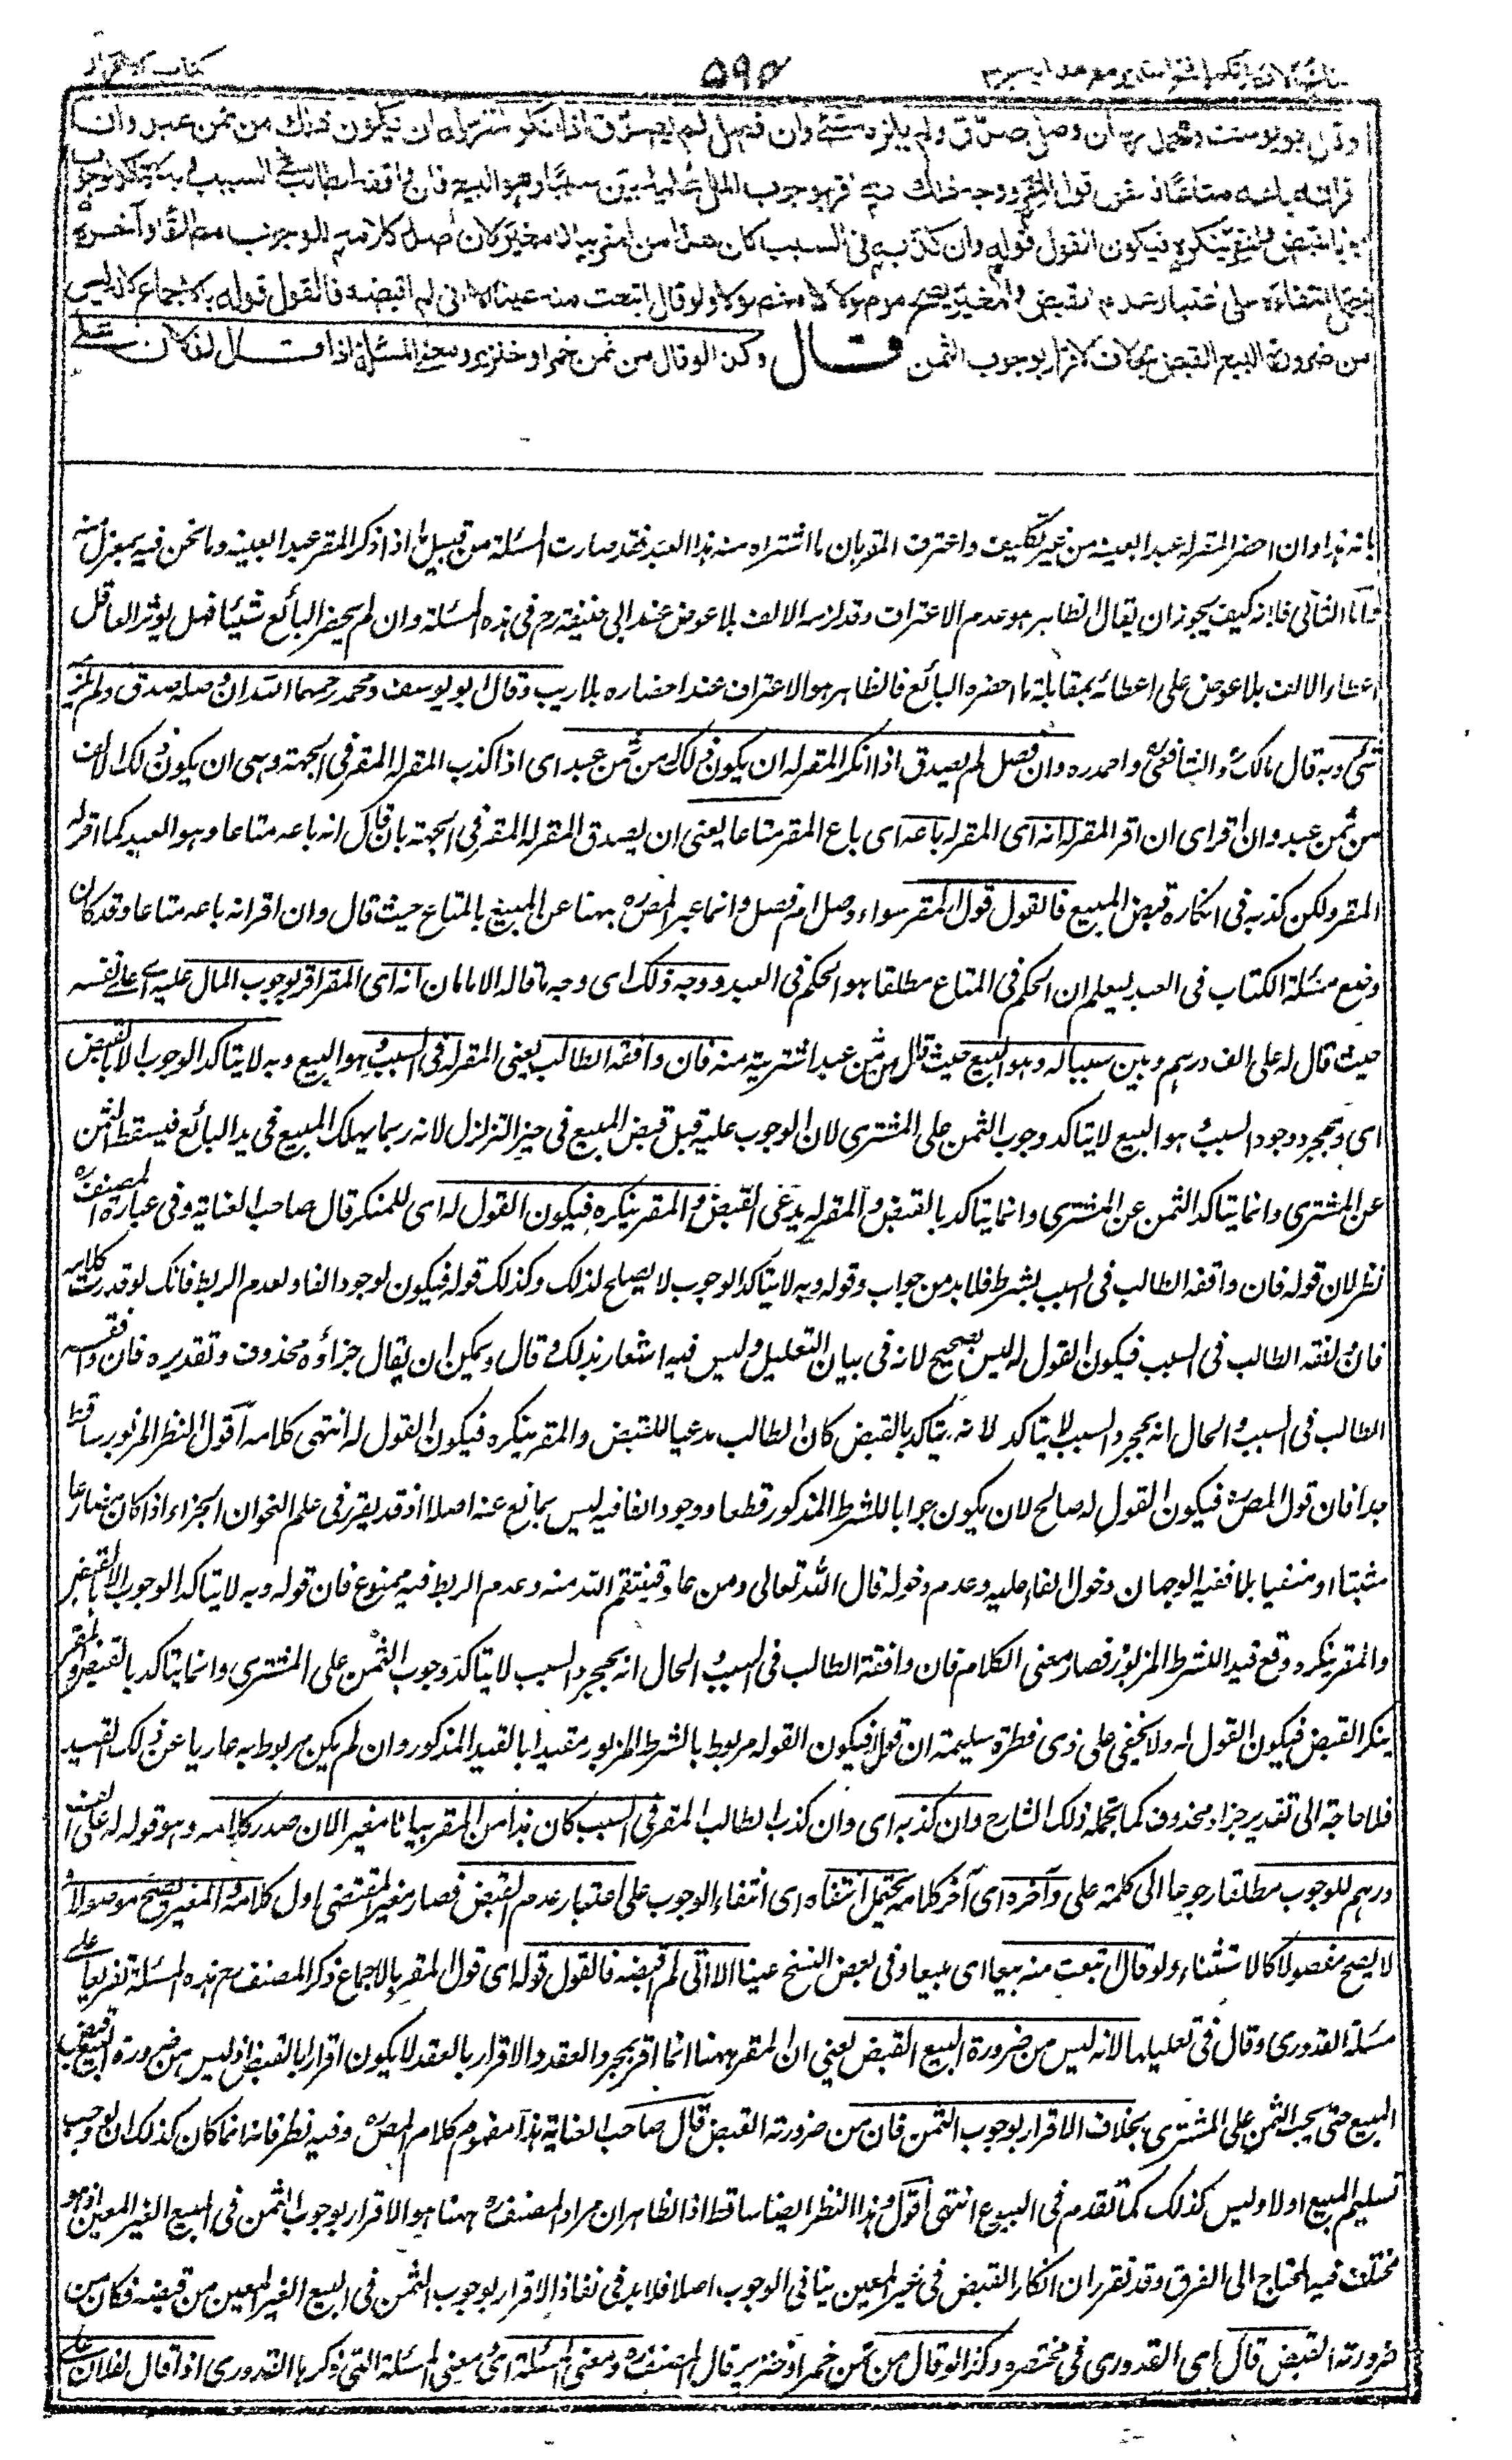 كتاب الاقرار
۵۹۴
وقال ابو يوسف ومحمد رح ان وصل صدق ولم يلزمه شئ وان فصل لم يصدق اذا انكر المقر له ان يكون ذلك من ثمن عبد وان
اقر انه باعه متاعا فالقول قول المقر ووجه ذلك انه اقر بوجوب المال عليه وبين سببا وهو البيع فان وافقه الطالب في السبب وبه لا يتأكد الوجوب
الا بالقبض والمقر ينكره فيكون القول قوله وان كذبه في السبب كان هذا من المقر بيانا مغيرا لان صدر كلامه للوجوب مطلقا وآخره
يحتمل انتفاءه على اعتبار عدم القبض والمغير يصح موصولا لا مفصولا ولو قال ابتعت منه عينا الا انى لم اقبضه فالقول قوله بالاجماع لانه ليس
من ضرورة البيع القبض بخلاف الاقرار بوجوب الثمن قال وكذا لو قال من ثمن خمر او خنزير ومعنى المسئلة اذا قال لفلان على
بانه نداوان احضر المقر له عبدا بعينه من غير تكليف واعترف المقر بان ما اشتراه منه هذا العبد فقد صارت المسئلة من قبيل ما اذا ذكر المقر عبدا بعينه وما نحن فيه بمعزل منه
واما الثانى فلانه كيف يجوز ان يقال الظاهر هو عدم الاعتراف وقد لزمه الالف بلا عوض عند ابى حنيفة رح فى هذه المسئلة وان لم يحضر البائع شيئا فهل يؤثر العاقل
اعطاء الالف بلا عوض على اعطائه بمقابلة ما احضره البائع فالظاهر هو الاعتراف عند احضاره بلا ريب وقال ابو يوسف ومحمد رحمهما الله ان وصله صدق ولم يلزمه
شئ وبه قال مالك والشافعى واحمد ره وان فصل لم يصدق اذا انكر المقر له ان يكون ذلك من ثمن عبد اى اذا كذب المقر له المقر فى الجهة وهى ان يكون ذلك الالف
من ثمن عبد وان اقر اى ان اقر المقر له انه اى المقر له باعه اى باع المقر متاعا يعنى ان يصدق المقر له المقر فى الجهة بان قال انه باعه متاعا وهو العبد كما اقر به
المقر ولكن كذبه فى انكاره قبض المبيع فالقول قول المقر سواء وصل ام فصل وانما عبر المص ره ههنا عن المبيع بالمتاع حيث قال وان اقر انه باعه متاعا وقد كان
وضع مسئلة الكتاب فى العبد ليعلم ان الحكم فى المتاع مطلقا هو الحكم فى العبد ووجه ذلك اى وجه ما قاله الامامان انه اى المقر اقر بوجوب المال عليه اى على نفسه
حيث قال له على الف درهم وبين سببا له وهو البيع حيث قال من ثمن عبد اشتريته منه فان وافقه الطالب يعنى المقر له فى السبب وهو البيع وبه لا يتأكد الوجوب الا بالقبض
اى وبمجرد وجود السبب وهو البيع لا يتأكد وجوب الثمن على المشترى لان الوجوب عليه قبل قبض المبيع فى حيز التزلزل لانه ربما يهلك المبيع فى يد البائع فيسقط الثمن
عن المشترى وانما يتأكد الثمن عن المشترى وانما يتأكد بالقبض والمقر له يدعى القبض والمقر ينكره فيكون القول له اى للمنكر قال صاحب العناية وفى عبارة المصنف ره
نظر لان قوله فان وافقه الطالب فى السبب بشرط فلا بد من جواب وقوله وبه لا يتأكد الوجوب لا يصلح لذلك وكذلك قوله فيكون لوجود الفا ولعدم الربط فانك لو قدرت كلامه
فان وافقه الطالب فى السبب فيكون القول له ليس بصحيح لانه فى بيان التعليل وليس فيه اشعار بذلك وقال ويمكن ان يقال جزاؤه محذوف وتقديره فان وافقه
الطالب فى السبب والحال انه بمجرد السبب لا يتأكد لانه يتأكد بالقبض كان الطالب مدعيا للقبض والمقر ينكره فيكون القول له انتهى كلامه اقول النظر المزبور ساقط
جدا فان قول المص ره فيكون القول له صالح لان يكون جوابا للشرط المذكور قطعا ووجود الفا فيه ليس بمانع عنه اصلا اذ قد يقرر فى علم النحو ان الجزاء اذا كان مضارعا
مثبتا او منفيا بلا ففيه الوجهان دخول الفاء عليه وعدم دخوله قال الله تعالى ومن عاد فينتقم الله منه وعدم الربط فيه ممنوع فان قوله وبه لا يتأكد الوجوب الا بالقبض
والمقر ينكره وقع قيدا للشرط المزبور فصار معنى الكلام فان وافقه الطالب فى السبب والحال انه بمجرد السبب لا يتأكد وجوب الثمن على المشترى وانما يتأكد بالقبض والمقر
ينكر القبض فيكون القول له ولا يخفى على ذى فطرة سليمة ان قوله فيكون القول له مربوط بالشرط المزبور مقيدا بالقيد المذكور وان لم يكن مربوط به عاريا عن ذلك القيد
فلا حاجة الى تقدير جزاء محذوف كما تجمله ذلك الشارح وان كذبه اى وان كذب الطالب المقر فى السبب كان هذا من المقر بيانا مغيرا لان صدر كلامه وهو قوله له على الف
درهم للوجوب مطلقا رجوعا الى كلمة على وآخره اى آخر كلامه يحتمل انتفاءه اى انتفاء الوجوب على اعتبار عدم القبض فصار مغيرا لمقتضى اول كلامه والمغير يصح موصولا
لا يصح مفصولا كالاستثناء ولو قال ابتعت منه بيعا اى مبيعا وفى بعض النسخ عينا الا انى لم اقبضه فالقول قوله اى قول المقر بالاجماع ذكر المصنف رح هذه المسئلة تفريعا على
مسئلة القدورى وقال فى تعليلها لانه ليس من ضرورة البيع القبض يعنى ان المقر ههنا انما اقر بمجرد العقد والاقرار بالعقد لا يكون اقرارا بالقبض اذ ليس من ضرورة البيع قبض
المبيع حتى يجب الثمن على المشترى بخلاف الاقرار بوجوب الثمن فان من ضرورته القبض قال صاحب العناية هذا مفهوم كلام المص ره وفيه نظر فانه انما كان كذلك ان لو وجب
تسليم المبيع اولا وليس كذلك كما تقدم فى البيوع انتهى اقول وهذا النظر ايضا ساقط اذ الظاهر ان مراد المصنف ره ههنا هو الاقرار بوجوب الثمن فى المبيع الغير المعين اذ هو
مختلف فيه المحتاج الى الفرق وقد تقرر ان انكار القبض فى غير المعين ينافى الوجوب اصلا فلا بد فى نفاذ الاقرار بوجوب الثمن فى المبيع الغير المعين من قبضه فكان من
ضرورته القبض قال اى القدورى فى مختصره وكذا لو قال من ثمن خمر او خنزير قال المصنف ره ومعنى المسئلة اى معنى المسئلة التى ذكرها القدورى اذا قال لفلان على